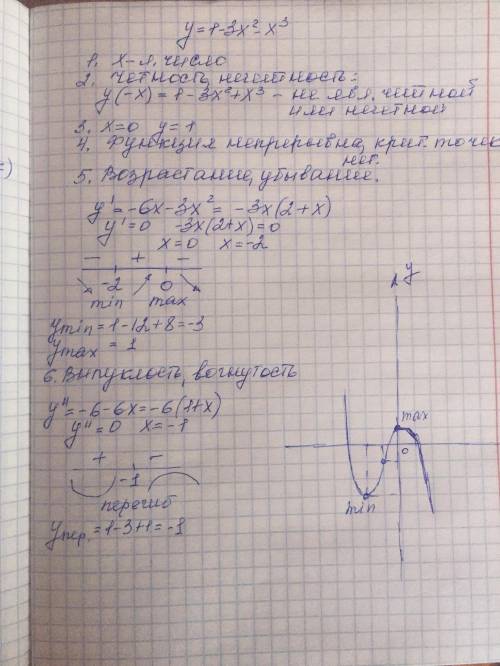 y=1-3x²-x³
1. x-л. число
2. Четность, нечетность:
y(-x)=1-3x²+x³ - не явл. четной
или нечетной
3. x=0 y=1
4. Функция непрерывна, крит. точек
нет.
5. Возрастание, убывание.
y'=-6x-3x²=-3x(2+x)
y'=0 -3x(2+x)=0
x=0 x=-2
- + -
-2 0
min max
y min=1-12+8=-3
y max=1
6. Выпуклость, вогнутость
y''=-6-6x=-6(1+x)
y''=0 x=-1
+ -
-1
перегиб
y пер.=1-3+1=-1
y
max
0
min